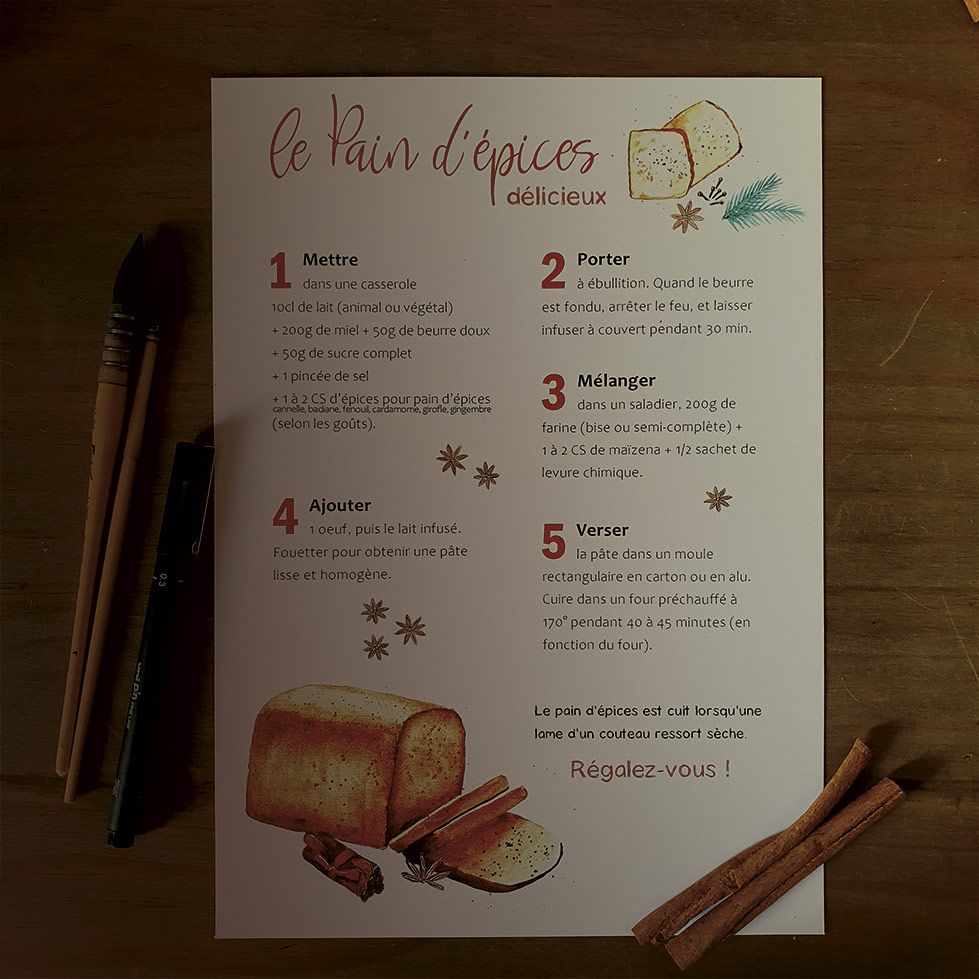 le Pain d'épices
délicieux
1 Mettre
dans une casserole
10cl de lait (animal ou végétal)
+ 200g de miel + 50g de beurre doux
+ 50g de sucre complet
+ 1 pincée de sel
+ 1 à 2 CS d'épices pour pain d'épices
cannelle, badiane, fenouil, cardamome, girofle, gingembre
(selon les goûts).
2 Porter
à ébullition. Quand le beurre
est fondu, arrêter le feu, et laisser
infuser à couvert pendant 30 min.
3 Mélanger
dans un saladier, 200g de
farine (bise ou semi-complète) +
1 à 2 CS de maïzena + 1/2 sachet de
levure chimique.
4 Ajouter
1 oeuf, puis le lait infusé.
Fouetter pour obtenir une pâte
lisse et homogène.
5 Verser
la pâte dans un moule
rectangulaire en carton ou en alu.
Cuire dans un four préchauffé à
170° pendant 40 à 45 minutes (en
fonction du four).
Le pain d'épices est cuit lorsqu'une
lame d'un couteau ressort sèche.
Régalez-vous !
0.3
uni pin